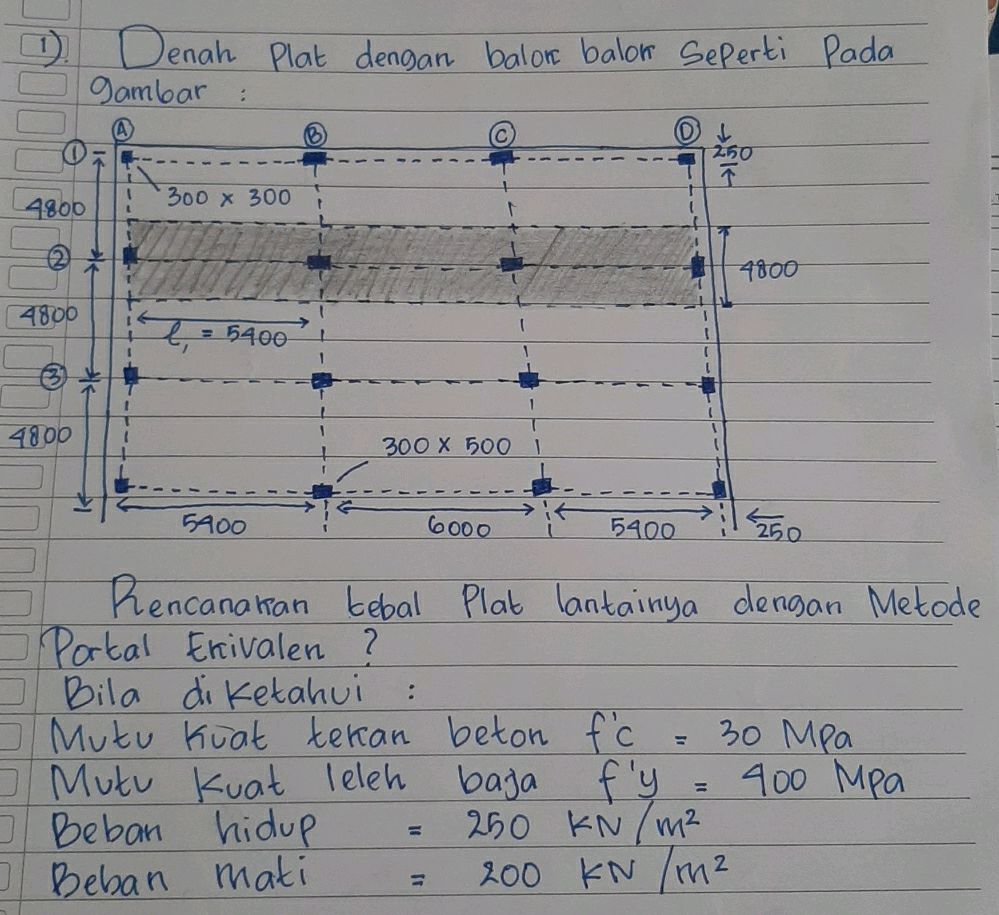 1). Denah Plat dengan balok balok Seperti Pada
gambar :
A B C D
1
250
300 x 300
4800
2
4800
4800
l1 = 5400
3
4800
300 x 500
5400 6000 5400 250
Rencanakan tebal Plat lantainya dengan Metode
Portal Ekivalen ?
Bila diketahui :
Mutu Kuat tekan beton f'c = 30 MPa
Mutu Kuat leleh baja f'y = 400 MPa
Beban hidup = 250 KN/m²
Beban mati = 200 KN/m²